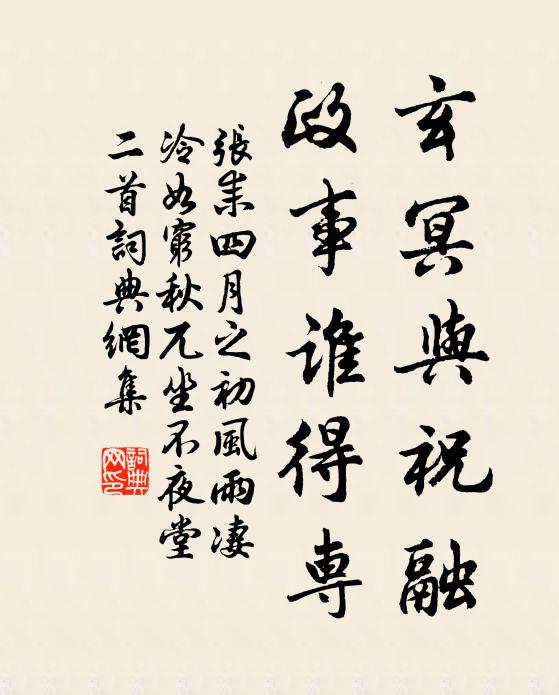 玄冥與祝融
政事誰得專
張耒四月之初風雨凄
冷如窮秋兀坐不夜堂
二首詞典網集
詞典
网印